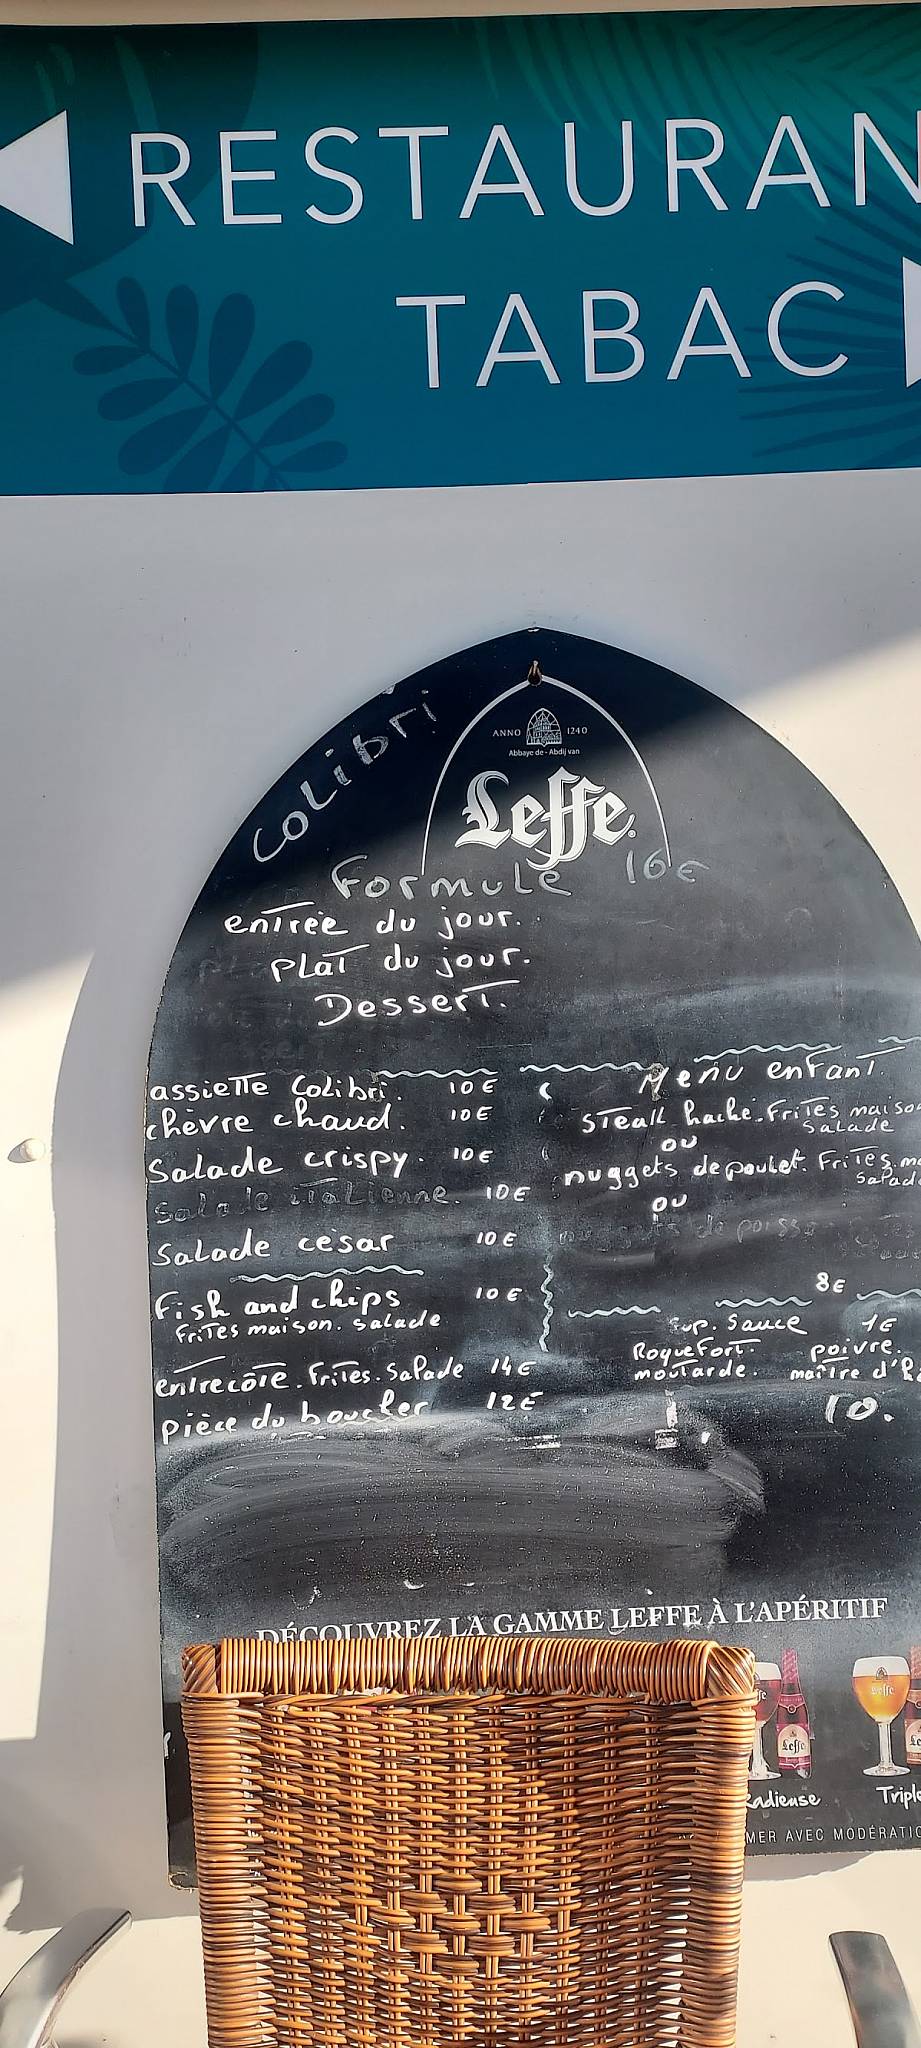 RESTAURAN
TABAC
Colibri
ANNO 1240
Abbaye de - Abdij van
Leffe
Formule 16€
entrée du jour.
Plat du jour.
Dessert.
assiette Colibri. 10€
chèvre chaud. 10€
Salade crispy. 10€
Salade italienne. 10€
Salade cèsar 10€
Fish and chips 10€
Frites maison. salade
entrecôte. Frites. Salade 14€
pièce du boucher 12€
Menu enfant.
Steak haché. Frites maiso
Salade
ou
nuggets de poulet. Frites. ma
Salad
ou
nuggets de poiss
8€
Sup. Sauce 1€
Roquefort. poivre.
moutarde. maître d'h
10.
DÉCOUVREZ LA GAMME LEFFE À L'APÉRITIF
Leffe
Leffe
Leffe
Radieuse
Triple
MER AVEC MODÉRATIO